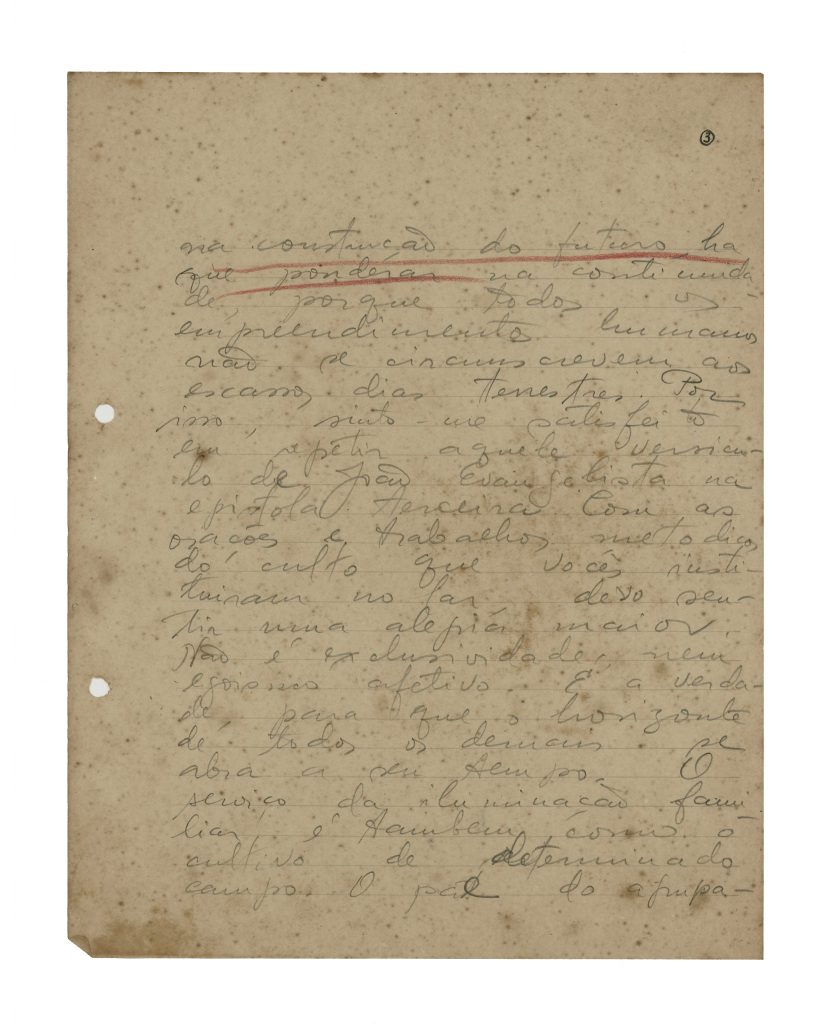 3
na construção do futuro, ha
que ponderar na continuida-
de, porque todos os
empreendimentos humanos
não se circunscrevem aos
escassos dias terrestres. Por
isso, sinto-me satisfeito
em repetir aquele versicu-
lo de João Evangelista na
epistola terceira. Com as
orações e trabalhos metodicos
do culto que vocês insti-
tuiram no lar devo sen-
tir uma alegria maior.
Não é exclusividade, nem
egoismo afetivo. E a verda-
de, para que o horizonte
de todos os demais se
abra a seu tempo. O
serviço da iluminação fami-
liar é tambem como o
cultivo de determinado
campo. O pai do agrupa-